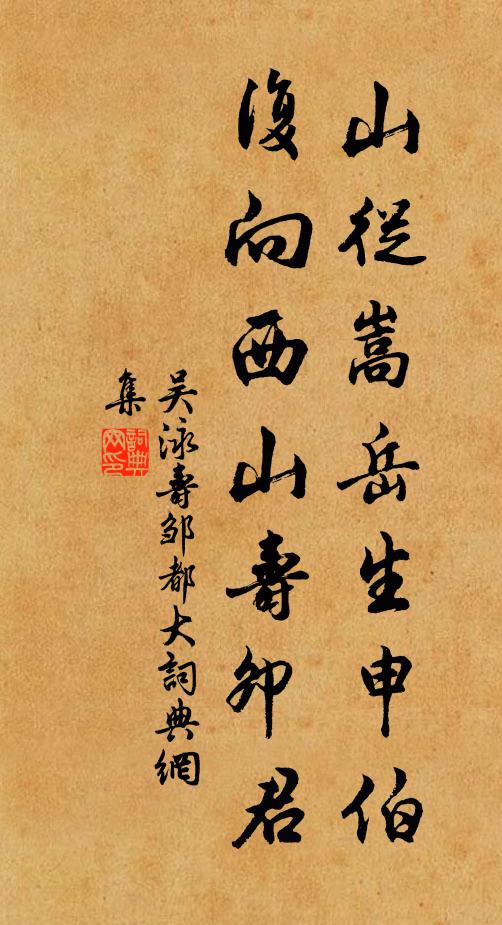 山從嵩岳生申伯
復向西山壽卯君
吴泳壽邹都大詞典網
集
詞典網印